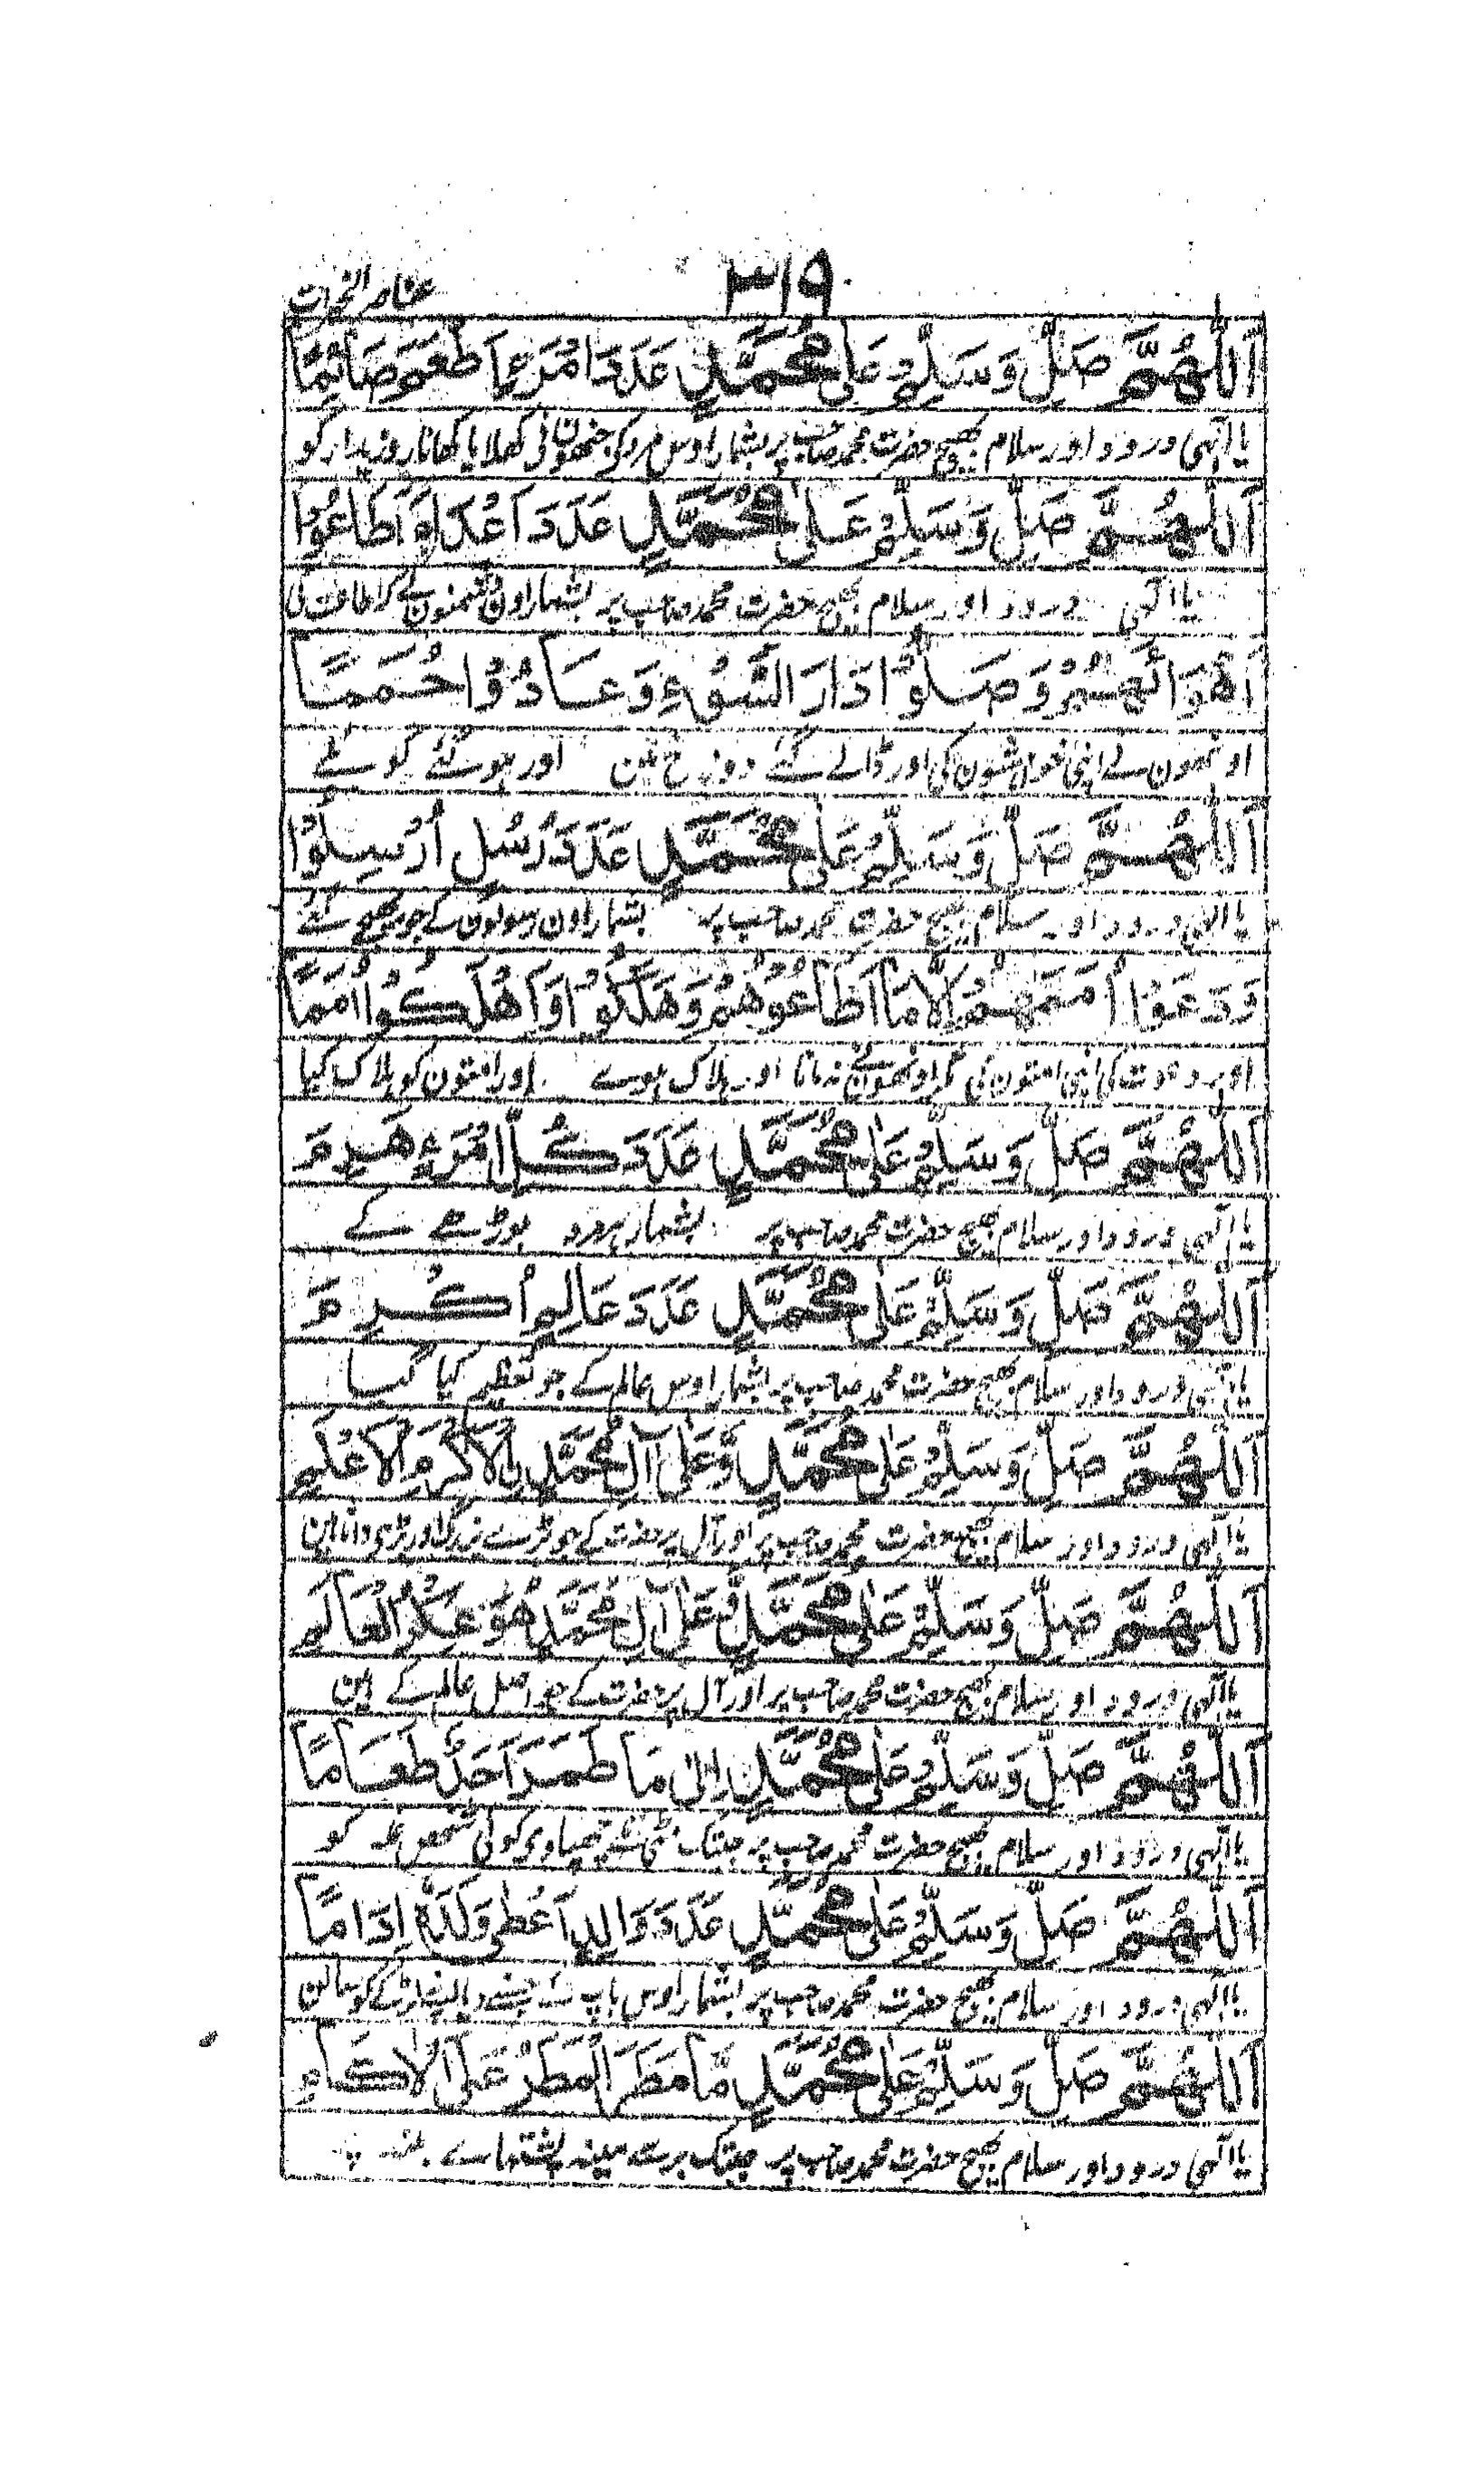 ٣١٩
عناصر الخیرات
اَللّٰهُمَّ صَلِّ وَسَلِّمْ عَلٰى مُحَمَّدٍ عَدَدَ امْرَءٍ اَطْعَمَ صَائِمًا
یا الٰہی درود اور سلام بھیج حضرت محمد صاحب پر بشمار اوس مرد کی جنھون نی کھلایا کھانا روزیدار کو
اَللّٰهُمَّ صَلِّ وَسَلِّمْ عَلٰى مُحَمَّدٍ عَدَدَ اَعْدَاءٍ اَطَاعُوْا
یا الٰہی درود اور سلام بھیج حضرت محمد صاحب پر بشمار اون دشمنون کے کہ اطاعت کی
اَهْوَائَهُمْ وَصَلَوْا دَارَ السُّوْءِ وَعَادُوْا حُمَمًا
اونھون نے اپنی خواہشون کی اور ڈالے گئے دوزخ مین اور ہو گئے کوئلے
اَللّٰهُمَّ صَلِّ وَسَلِّمْ عَلٰى مُحَمَّدٍ عَدَدَ رُسُلٍ اُرْسِلُوْا
یا الٰہی درود اور سلام بھیج حضرت محمد صاحب پر بشمار اون رسولون کے جو بھیجے گئے
وَدَعَوْا اُمَمَهُمْ اِلَّا مَا اَطَاعُوْهُمْ وَهَلَكُوْا وَاَهْلَكُوْا اُمَمًا
اور دعوت کی اپنی امتون کی مگر اونھون نے نہ مانا اور ہلاک ہوے اور امتون کو ہلاک کیا
اَللّٰهُمَّ صَلِّ وَسَلِّمْ عَلٰى مُحَمَّدٍ عَدَدَ كُلِّ امْرَءٍ هَرِمَ
یا الٰہی درود اور سلام بھیج حضرت محمد صاحب پر بشمار ہر مرد بوڑھے کے
اَللّٰهُمَّ صَلِّ وَسَلِّمْ عَلٰى مُحَمَّدٍ عَدَدَ عَالِمٍ اُكْرِمَ
یا الٰہی درود اور سلام بھیج حضرت محمد صاحب پر بشمار اوس عالم کے جو تعظیم کیا گیا
اَللّٰهُمَّ صَلِّ وَسَلِّمْ عَلٰى مُحَمَّدٍ وَّعَلٰى آلِ مُحَمَّدِ نِ الْاَكْرَمِ الْاَعْلَمِ
یا الٰہی درود اور سلام بھیج حضرت محمد صاحب پر اور آل پر حضرت کے جو بڑے بزرگ اور بڑی دانا ہین
اَللّٰهُمَّ صَلِّ وَسَلِّمْ عَلٰى مُحَمَّدٍ وَّعَلٰى آلِ مُحَمَّدٍ هُوَ الْعَالَمِ
یا الٰہی درود اور سلام بھیج حضرت محمد صاحب پر اور آل پر حضرت کے جو اصل عالم کے ہین
اَللّٰهُمَّ صَلِّ وَسَلِّمْ عَلٰى مُحَمَّدٍ اِلٰى مَا طَمَرَ اَحَدٌ طَعَامًا
یا الٰہی درود اور سلام بھیج حضرت محمد صاحب پر جبتک کوئی شخص غلہ کو
اَللّٰهُمَّ صَلِّ وَسَلِّمْ عَلٰى مُحَمَّدٍ عَدَدَ وَالِدٍ اَعْطٰى وَلَدَهٗ اِدَامًا
یا الٰہی درود اور سلام بھیج حضرت محمد صاحب پر بشمار اوس باپ کے جسنے دیا اپنے لڑکے کو سالن
اَللّٰهُمَّ صَلِّ وَسَلِّمْ عَلٰى مُحَمَّدٍ مَّا مَطَرَ الْمَطَرُ عَلَى الْاٰكَامِ
یا الٰہی درود اور سلام بھیج حضرت محمد صاحب پر جبتک برسے مینہ پشتہاے بلند پر